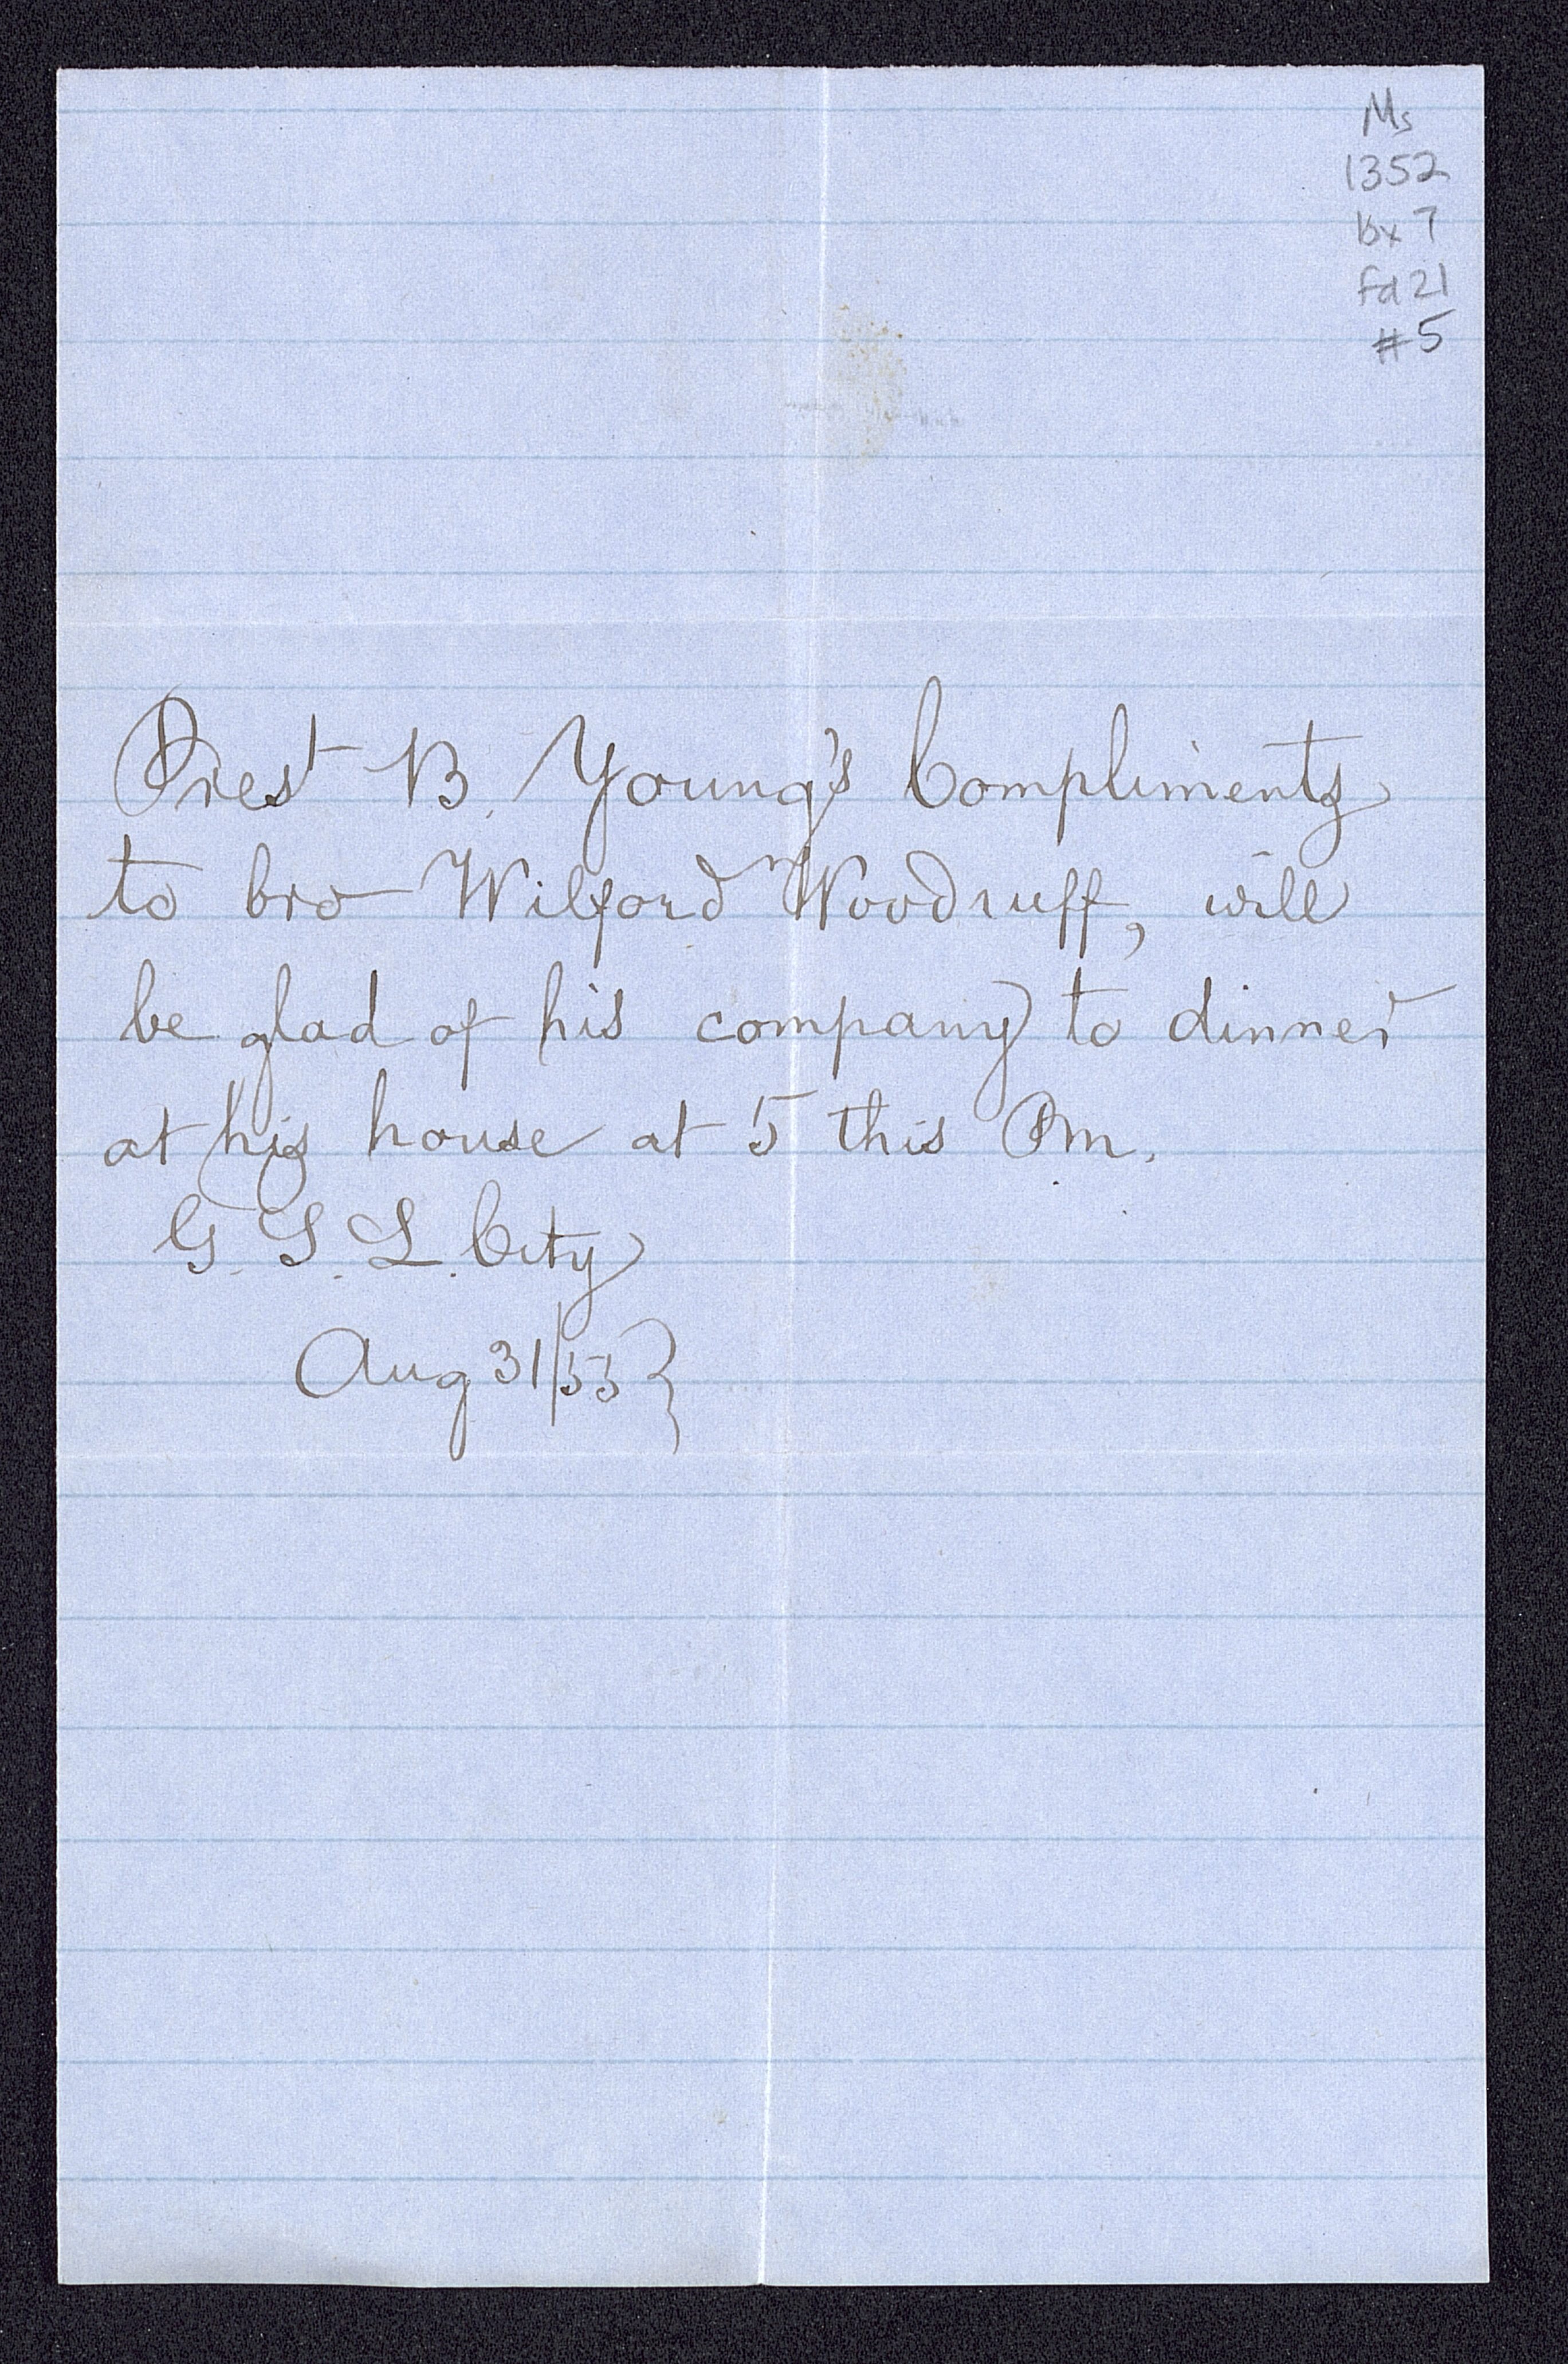 Ms
1352
bx 7
fd 21
#5
Prest B. Young's Compliments
to bro Wilford Woodruff, will
be glad of his company to dinner
at his house at 5 this Pm.
G. S. L. City
Aug 31/53}